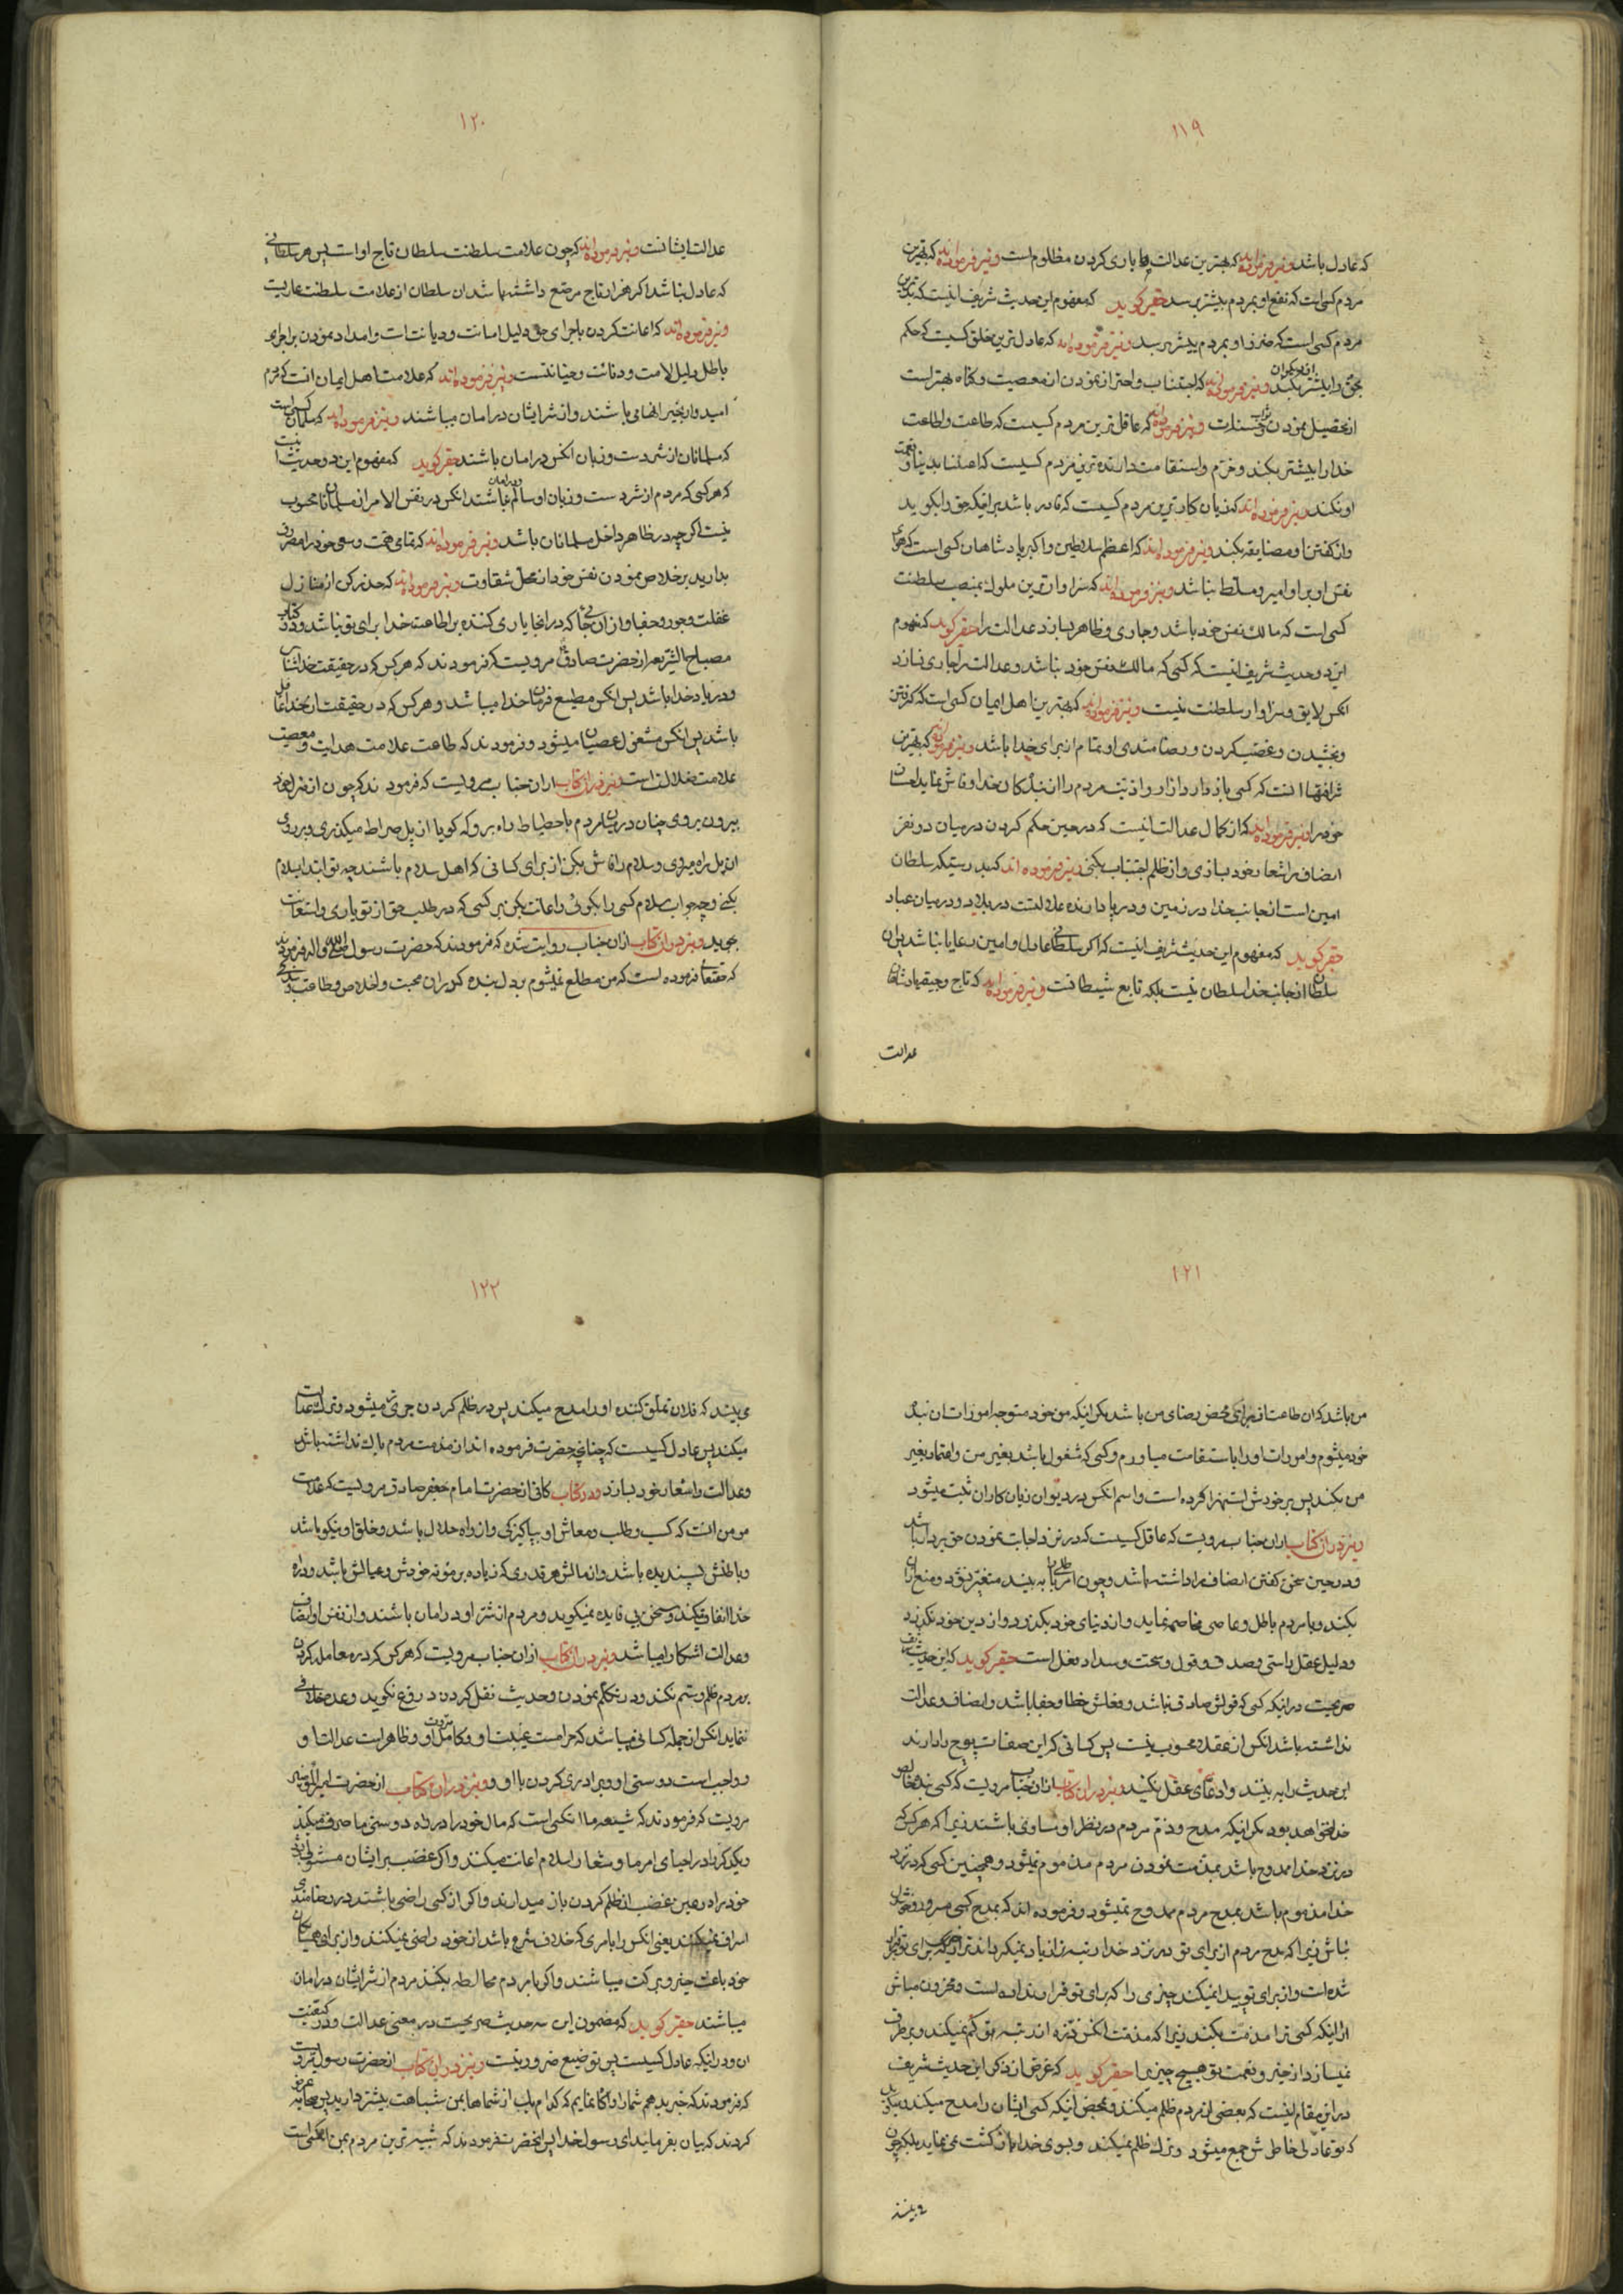 ۱۱۹
که عادل باشد ونیز فرموده‌اند که بهترین عدالت یاری کردن مظلوم است ونیز فرموده‌اند که بهترین
مردم کسی است که نفع او بمردم بیشتر برسد حقیر کوید که مفهوم این حدیث شریف اینست که بدترین
مردم کسی است که ضرر او بمردم بیشتر برسد ونیز فرموده‌اند که عادل ترین خلق کسیست که حکم
بحق را بیشتر بکند از دیکران ونیز فرموده‌اند که اجتناب واحتراز نمودن از معصیت وکناه بهتر است
از تحصیل نمودن ثواب وحسنات ونیز فرموده‌اند که عاقل ترین مردم کسیست که طاعت واطاعت
خدا را بیشتر بکند وخرم واستقامت دارنده ترین مردم کسیست که اعتنا بدنیا و
او نکند ونیز فرموده‌اند که زیان کارترین مردم کسیست که قادر باشد بر اینکه حق را بکوید
واز کفتن او مضایقه بکند ونیز فرموده‌اند که اعظم سلاطین واکبر پادشاهان کسی است که هوای
نفس او بر او امیر ومسلط نباشد ونیز فرموده‌اند که سزاوارترین ملوک بمنصب سلطنت
کسی است که مالک نفس خود باشد وجاری وظاهر بسازد عدالت را حقیر کوید که مفهوم
این دو حدیث شریف اینست که کسی که مالک نفس خود نباشد وعدالت را جاری نسازد
انکس لایق وسزاوار سلطنت نیست ونیز فرموده‌اند که بهترین اهل ایمان کسی است که کرفتن
وبخشیدن وغضب کردن ورضامندی او تمام از برای خدا باشد ونیز فرموده‌اند که بهترین
شرافتها انست که کسی بازدارد ازار واذیت مردم را از بندکان خدا وفاش نماید احسان
خود را ونیز فرموده‌اند که از کمال عدالت اینست که در حین حکم کردن در میان دو نفر
انصاف را شعار خود بسازی واز ظلم اجتناب بکنی ونیز فرموده‌اند که بدرستیکه سلطان
امین است از جانب خدا در زمین وبر پا دارنده عدالتست در بلاد ودر میان عباد
حقیر کوید که مفهوم این حدیث شریف اینست که اکر سلطانی عادل وامین رعایا نباشد پس ان
سلطان از جانب خدا سلطان نیست بلکه تابع شیطانست ونیز فرموده‌اند که تاج وجیقه پادشاهان
عدالت
۱۲۰
عدالت ایشانست ونیز فرموده‌اند که چون علامت سلطنت سلطان تاج اوست پس هر سلطانی
که عادل نباشد اکر هزار تاج مرصع داشته باشد ان سلطان از علامت سلطنت عاریست
ونیز فرموده‌اند که اعانت کردن باجرای حق دلیل امانت ودیانت است وامداد نمودن بر اجرای
باطل دلیل لامت ودنائت وخیانتست ونیز فرموده‌اند که علامت اهل ایمان انست که مردم
امیدوار بخیر انها می باشند واز شر ایشان در امان میباشند ونیز فرموده‌اند که مسلمان کسی است
که مسلمانان از شر دست وزبان انکس در امان باشند حقیر کوید که مفهوم این دو حدیث اینست
که هر کسی که مردم از شر دست وزبان او سالم ودر امان نباشند انکس در نفس الامر از مسلمانان محسوب
نیست اکر چه در ظاهر داخل مسلمانان باشد ونیز فرموده‌اند که تمامی همت وسعی خود را مصروف
بدارید بر خلاص نمودن نفس خود از محل شقاوت ونیز فرموده‌اند که حذر کن از منازل
غفلت وجور وجفا واز ان جائی که در انجا یاری کننده بر اطاعت خدا برای تو نباشد ودر کتاب
مصباح الشریعه از حضرت صادق مرویست که فرمودند که هر کس که در حقیقت خداشناس
ودر یاد خدا باشد پس انکس مطیع فرمان خدا میباشد وهر کس که در حقیقت از خدا غافل
باشد پس انکس مشغول عصیان میشود وفرمودند که طاعت علامت هدایت ومعصیت
علامت ضلالت است ونیز در ان کتاب از ان جناب مرویست که فرمودند که چون از منزل خود
بیرون بروی چنان در میان مردم باحتیاط راه برو که کویا از پل صراط میکذری وبر روی
ان پل راه میروی وسلام را فاش بکن از برای کسانی که اهل سلام باشند چه تو ابتدا بسلام
بکنی وچه جواب سلام کسی را بکوئی واعانت بکن بر کسی که در طلب حق از تو یاری واستعانت
بجوید ونیز در ان کتاب از ان جناب روایت شده که فرمودند که حضرت رسول صلی الله واله فرموده‌اند
که حقتعالی فرموده است که من مطلع نمیشوم بر دل بنده که در ان محبت واخلاص وطاعت
۱۲۱
من باشد که ان طاعت از برای محض رضای من باشد مکر اینکه من خود متوجه امورات ان بنده
خود میشوم وامورات او را باستقامت میاورم وکسی که مشغول باشد بغیر من واعتماد بغیر
من بکند پس بر خودش استهزا کرده است واسم انکس در دیوان زیان کاران ثبت میشود
ونیز در ان کتاب از ان جناب مرویست که عاقل کسیست که در نزد اجابت نمودن حق بردبار باشد
ودر حین سخن کفتن انصاف را داشته باشد وچون باطلی به بیند متغیر بشود ومنع ان
بکند وبا مردم باطل وعاصی مخاصمه نماید واز دنیای خود بکذرد واز دین خود نکذرد
ودلیل عقل راستی وصدق وقول وصحت وسداد فعل است حقیر کوید که این حدیث شریف
صریحست در اینکه کسی که قولش صادق نباشد وفعلش خطا وجفا باشد وانصاف وعدالت
نداشته باشد انکس از عقلا محسوب نیست پس کسانی که این صفات پوچ را دارند
این حدیث را به بینند وادعای عقل نکنند ونیز در ان کتاب از ان جناب مرویست که کسی بنده خالص
خدا نخواهد بود مکر اینکه مدح وذم مردم در نظر او مساوی باشند زیرا که هر کس که
در نزد خدا ممدوح باشد بمذمت نمودن مردم مذموم نمیشود وهمچنین کسی که در نزد
خدا مذموم باشد بمدح مردم ممدوح نمیشود وفرموده‌اند که بمدح کسی مسرور وخوشحال
مباش زیرا که مدح مردم از برای تو در نزد خدا رتبه ترا زیاد نمیکرداند از انچه برای تو
شده است واز برای تو پیدا نمیکند چیزی را که برای تو قرار نداده است ومحزون مباش
از اینکه کسی ترا مذمت بکند زیرا که مذمت انکس ذره از رتبه تو کم نمیکند وبر طرف
نمیسازد از خیر ونعمت تو هیچ چیزی را حقیر کوید که غرض از ذکر این حدیث شریف
در این مقام اینست که بعضی از مردم ظلم میکنند ومحض اینکه کسی ایشان را مدح میکند ومیکوید
که تو عادلی خاطرش جمع میشود وترک ظلم نمیکند وبسوی خدا بازکشت نمی نماید بلکه چون
می بیند
۱۲۲
می بیند که فلان تملق کننده او را مدح میکند پس در ظلم کردن جری تر میشود وترک عدالت
میکند پس عادل کسیست که چنانچه حضرت فرموده‌اند از مذمت مردم باک نداشته باشد
وعدالت را شعار خود بسازد ودر کتاب کافی از حضرت امام جعفر صادق مرویست که علامت
مومن انست که کسب وطلب ومعاش او بپاکیزکی واز راه حلال باشد وخلق او نیکو باشد
وباطنش پسندیده باشد واز مالش هر قدری که زیاده بر مؤنه خودش وعیالش باشد در راه
خدا انفاق میکند وسخن بی فایده نمیکوید ومردم از شر او در امان باشند واز نفس او انصاف
وعدالت اشکارا میباشد ونیز در ان کتاب از ان جناب مرویست که هر کس که در معامله کردن
بمردم ظلم وستم نکند ودر تکلم نمودن وحدیث نقل کردن دروغ نکوید وعده خلافی
ننماید انکس از جمله کسانی میباشد که حرامست غیبت او وکامل مروت او وظاهر است عدالت او و
وواجب است دوستی او وبرادری کردن با او ونیز در ان کتاب از حضرت امیرالمؤمنین
مرویست که فرمودند که شیعه ما انکسی است که مال خود را در راه دوستی ما صرف میکند
ویکدیکر را در احیای امر ما وشعار اسلام اعانت میکند واکر غضب بر ایشان مستولی باشد
خود را در عین غضب از ظلم کردن باز میدارند واکر از کسی راضی باشند در رضامندی
اسراف نمیکنند یعنی انکس را بامری که خلاف شرع باشد از خود راضی نمیکنند واز برای همسایکان
خود باعث خیر وبرکت میباشند واکر با مردم مخالطه بکنند مردم از شر ایشان در امان
میباشند حقیر کوید که مضمون این سه حدیث صریحست در معنی عدالت ودر کیفیت
ان ودر اینکه عادل کسیست پس توضیح ضرور نیست ونیز در ان کتاب از حضرت رسول مرویست
که فرمودند که خبر بدهم شما را واکاه نمایم که کدام یک از شماها بمن شباهت بیشتر دارید پس صحابه عرض
کردند که بیان بفرمائید ای رسول خدا پس انحضرت فرمودند که شبیه ترین مردم بمن انکسی است